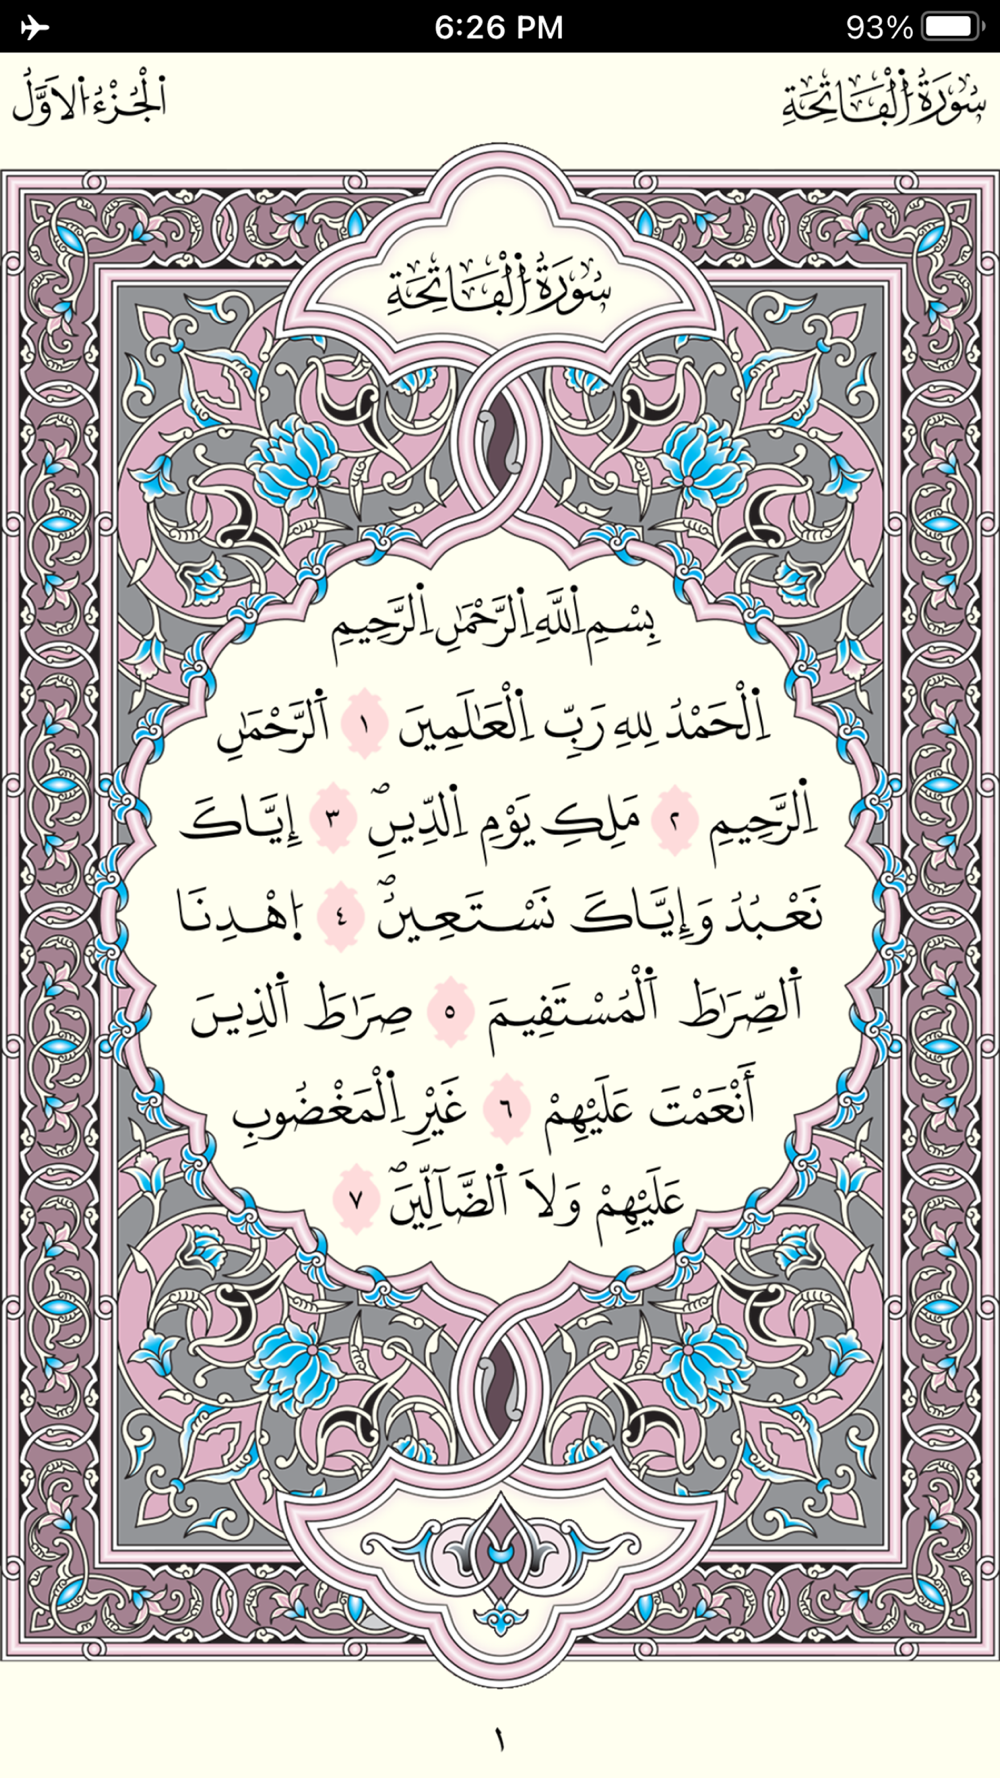 6:26 PM
93%
سُورَةُ اُ۬لْفَاتِحَةِ
اَ۬لْجُزْءُ اُ۬لَاوَّلُ
سُورَةُ اُ۬لْفَاتِحَةِ
بِسْمِ اِ۬للَّهِ اِ۬لرَّحْمَٰنِ اِ۬لرَّحِيمِ
اِ۬لْحَمْدُ لِلهِ رَبِّ اِ۬لْعَٰلَمِينَ ١ اَ۬لرَّحْمَٰنِ
اِ۬لرَّحِيمِ ٢ مَلِكِ يَوْمِ اِ۬لدِّينِۖ ٣ إِيَّاكَ
نَعْبُدُ وَإِيَّاكَ نَسْتَعِينُۖ ٤ اِ۪هْدِنَا
اَ۬لصِّرَٰطَ اَ۬لْمُسْتَقِيمَ ٥ صِرَٰطَ اَ۬لذِينَ
أَنْعَمْتَ عَلَيْهِمْ ٦ غَيْرِ اِ۬لْمَغْضُوبِ
عَلَيْهِمْ وَلَا اَ۬لضَّآلِّينَۖ ٧
١